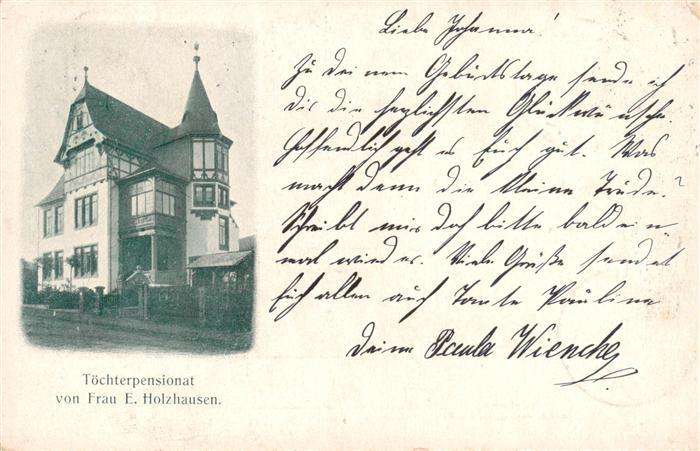 Liebe Johanna!
Zu deinem Geburtstage sende ich
dir die herzlichsten Glückwünsche.
Hoffendlich geht es Euch gut. Was
macht denn die kleine Trude?
Schreibt mir doch bitte bald ein
mal wieder. Viele Grüße sendet
Euch allen auch Tante Pauline
Deine Paula Wiencke
Töchterpensionat
von Frau E. Holzhausen.